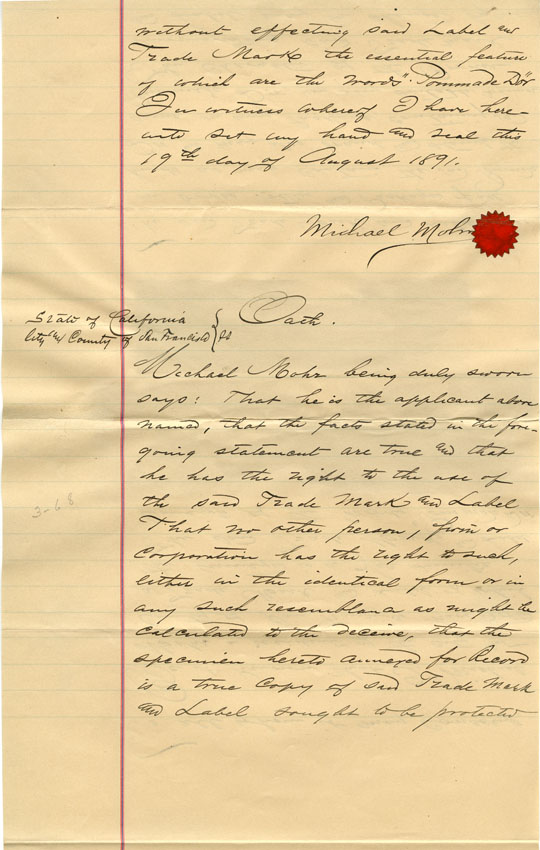 without effecting said Label and
Trade Mark the essential feature
of which are the words "Pommade Dor
In witness whereof I have here-
unto set my hand and seal this
19th day of August 1891.
Michael Mohr
State of California
City and County of San Francisco } ss
Oath.
Michael Mohr being duly sworn
says: That he is the applicant above
named, that the facts stated in the fore-
going statement are true and that
he has the right to the use of
the said Trade Mark and Label
That no other person, firm or
Corporation has the right to such,
either in the identical form or in
any such resemblance as might be
calculated to the deceive, that the
specimen hereto annexed for Record
is a true Copy of said Trade Mark
and Label sought to be protected
3-68